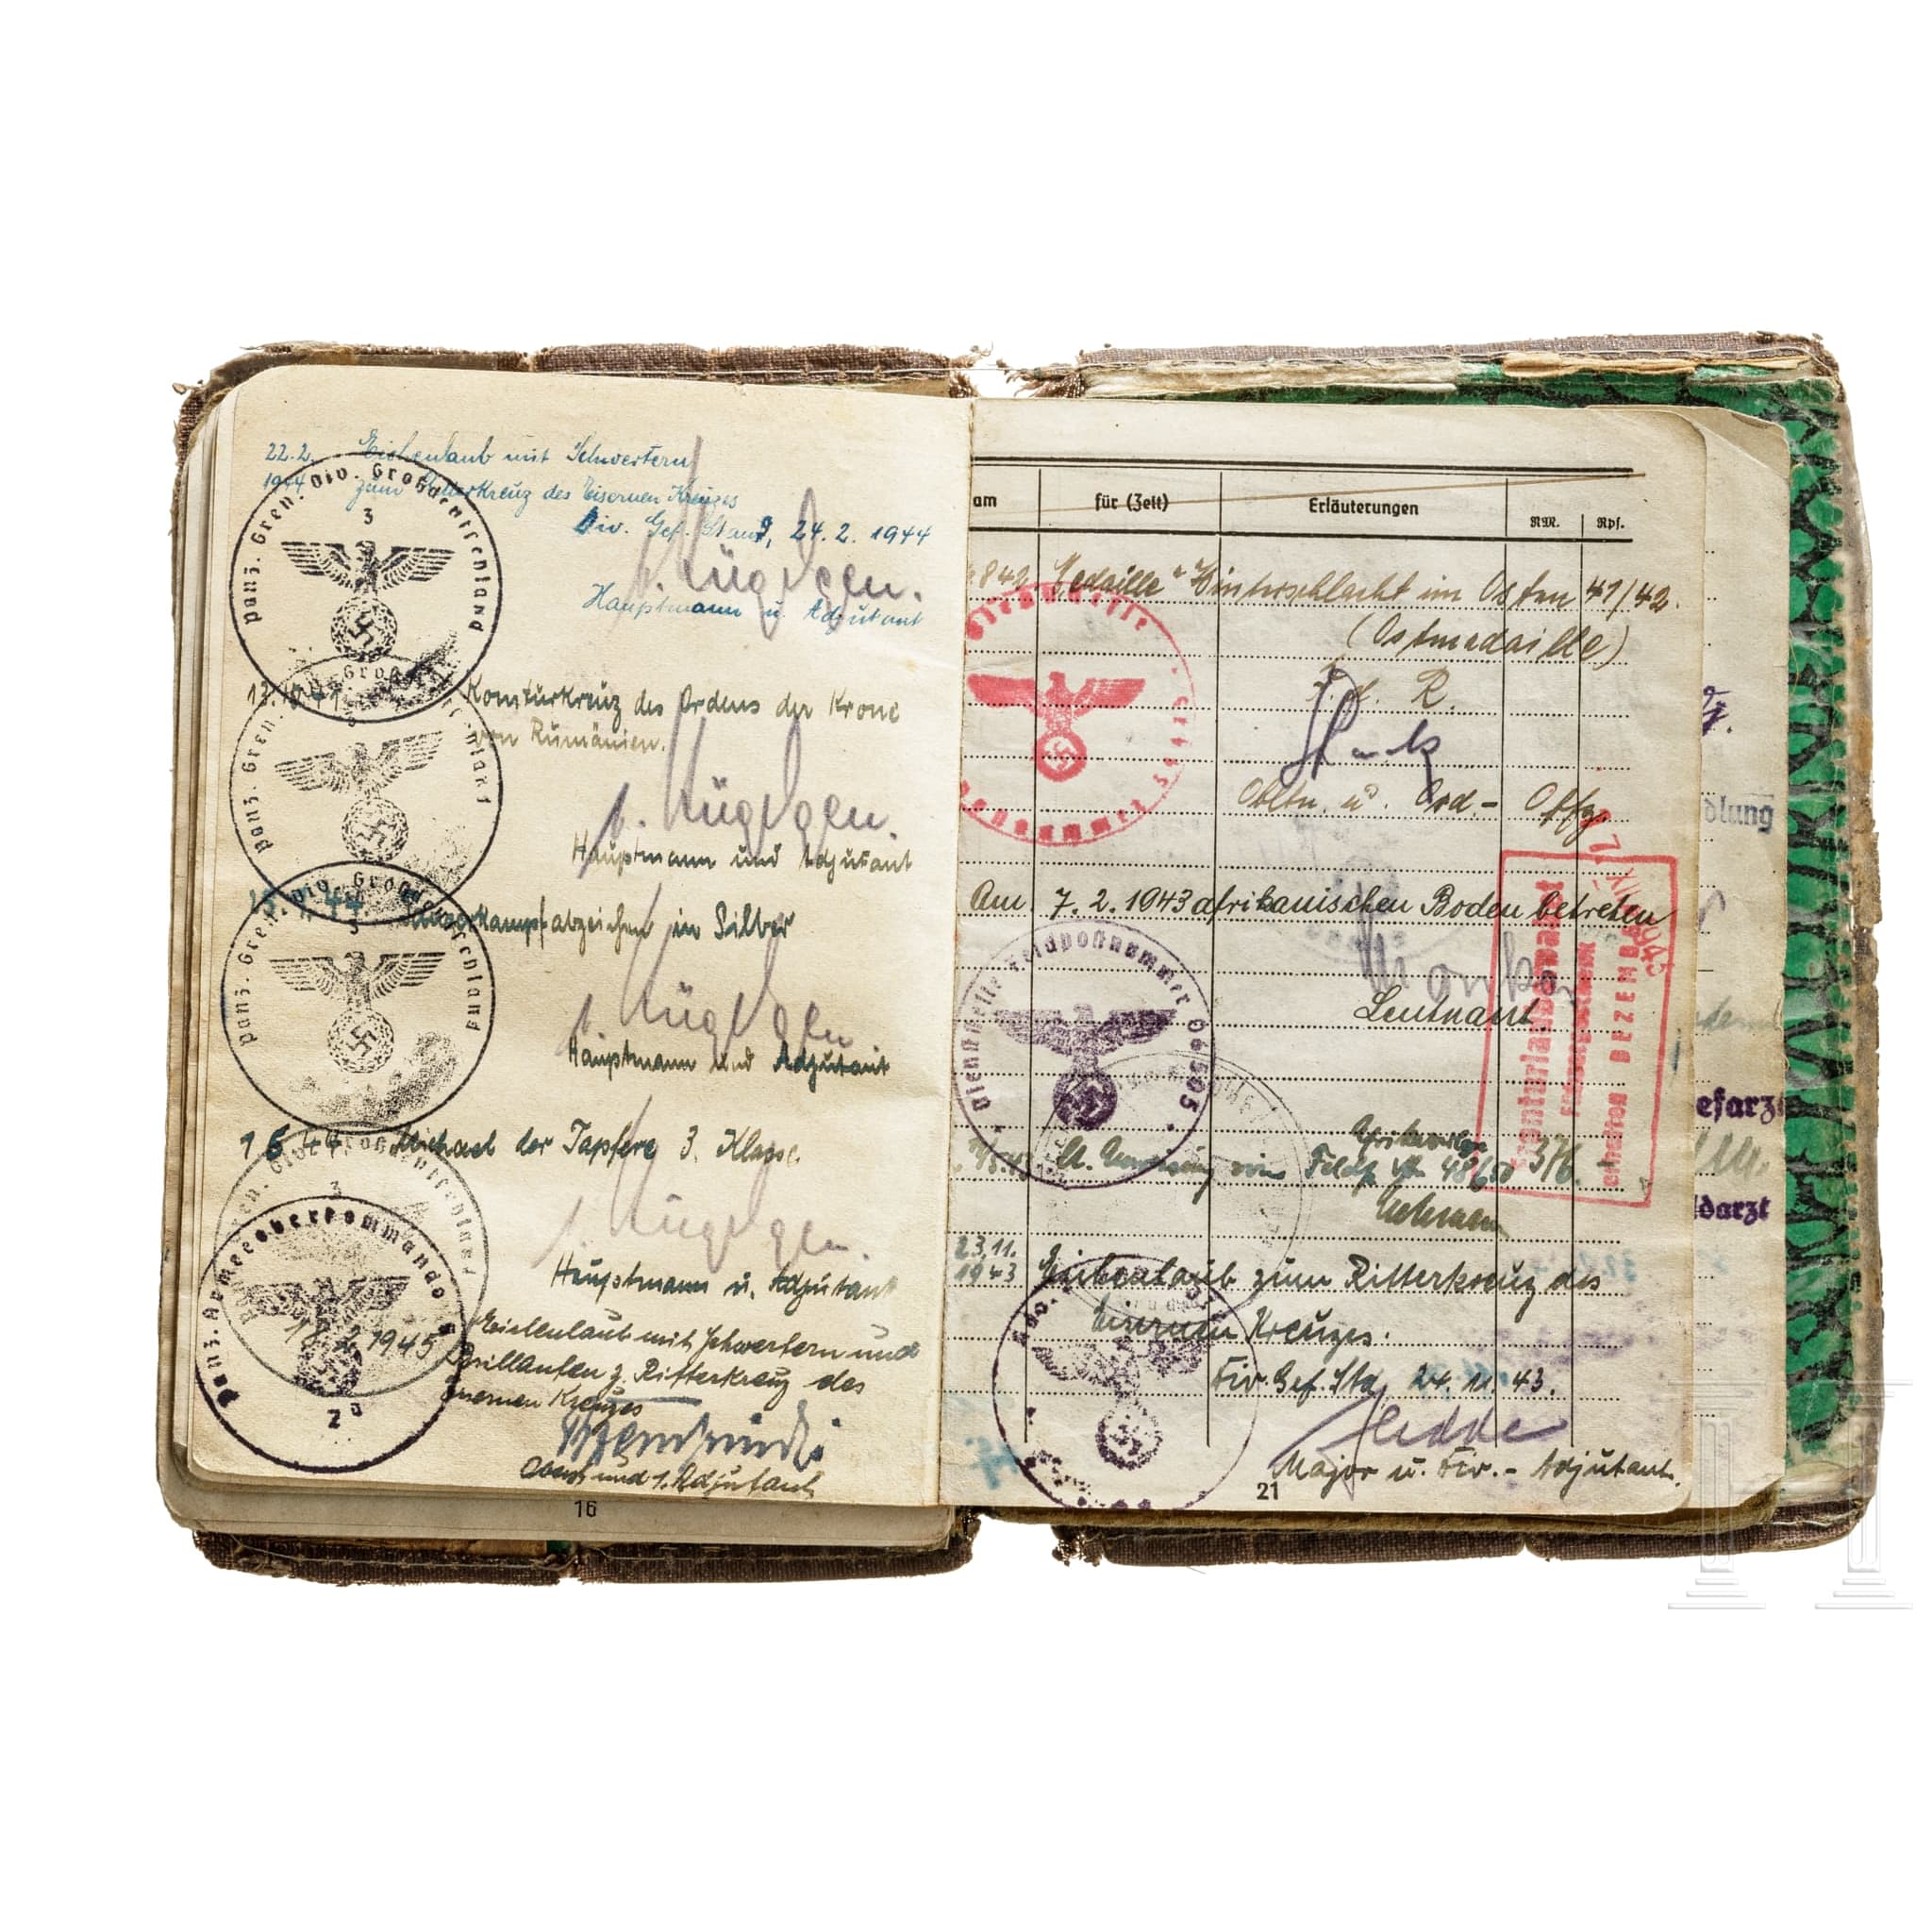 22.2. Eichenlaub mit Schwertern
1944 zum Ritterkreuz des Eisernen Kreuzes
Div. Gef. Stand, 24.2.1944
v. Kügelgen.
Hauptmann u. Adjutant
Panz. Gren. Div. Großdeutschland
3
Komturkreuz des Ordens der Krone
von Rumänien.
v. Kügelgen.
Hauptmann und Adjutant
Panz. Gren. Div. Großdeutschland
3
Panzerkampfabzeichen in Silber
v. Kügelgen
Hauptmann und Adjutant
Panz. Gren. Div. Großdeutschland
3
Michael der Tapfere 3. Klasse
v. Kügelgen.
Hauptmann u. Adjutant
3
Panz. Armeeoberkommando
18.2.1945 Eichenlaub mit Schwertern und
Brillanten z. Ritterkreuz des
Eisernen Kreuzes
Oberst und 1. Adjutant
2a
16
am für (Zeit) Erläuterungen RM. Rpf.
Medaille "Winterschlacht im Osten 41/42.
(Ostmedaille)
F. d. R.
Obltn. u. Ord- Offz.
Am 7.2.1943 afrikanischen Boden betreten
Leutnant
Dienststelle Feldpostnummer 06505
Frontkämpferpaket
DEZEMBER
1943
lt. Anweisung von Feldp. 376.
23.11.
1943 Eichenlaub zum Ritterkreuz des
Eisernen Kreuzes.
Div. Gef. Std. 24.11.43.
Hedde
Major u. Div. - Adjutant.
21
dlung
efarzt
ldarzt